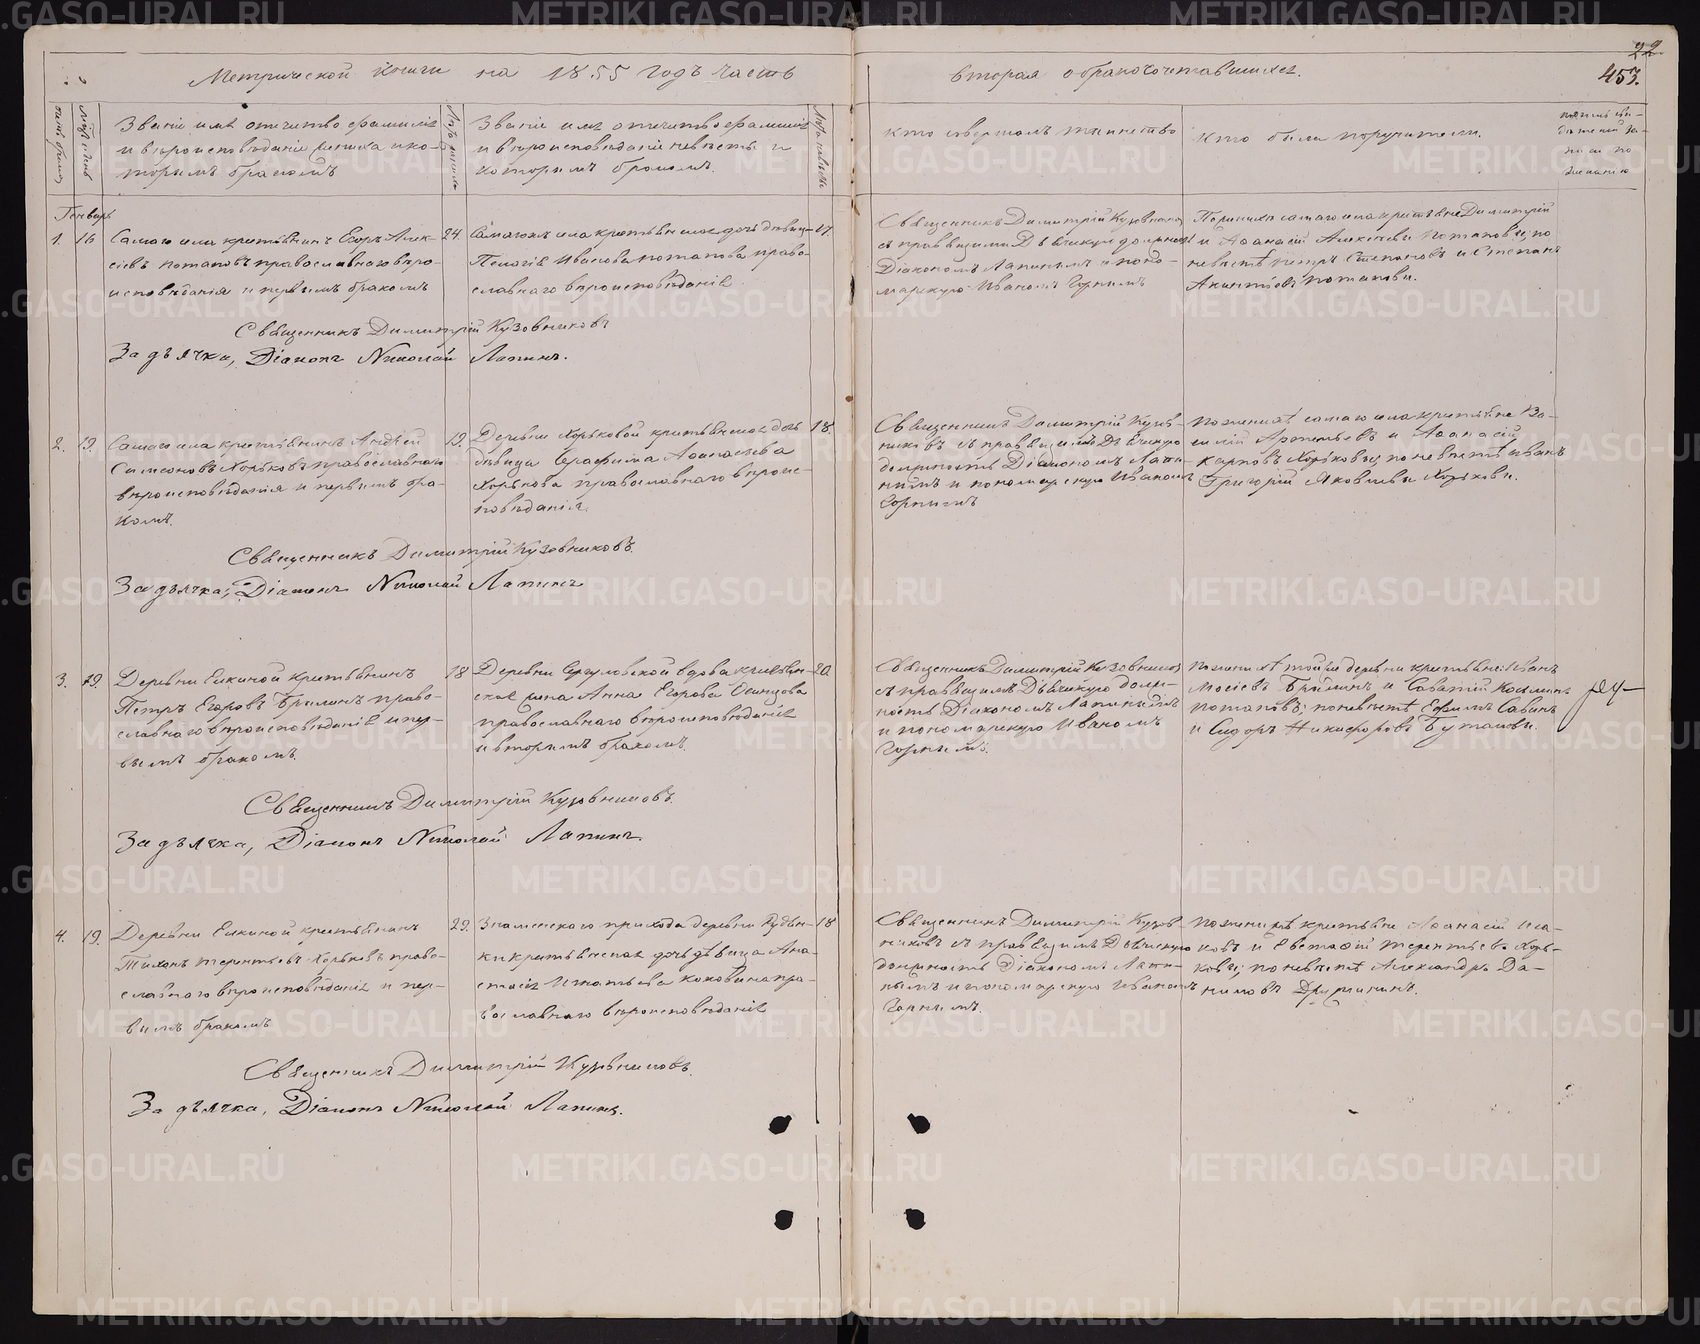 Метрической книги на 1855 годъ часть
вторая о бракосочетавшихся.
22
457.
Званіе имя отчество фамилія
и вѣроисповѣданіе жениха и ко-
торымъ бракомъ
Званіе имя отчество фамилія
и вѣроисповѣданіе невѣсты и
которымъ бракомъ.
Кто совершалъ таинство
Кто были поручители.
Генварь
1. 16
Самаго села крестьянинъ Егоръ Алек-
сіевъ Потаповъ православнаго вѣро-
исповѣданія и первымъ бракомъ
24
Самаго села крестьянская дочь дѣвица
Пелагія Иванова Потапова право-
славнаго вѣроисповѣданія
17.
Священникъ Димитрій Кузовниковъ
съ правящими Дьяческую должность
Діакономъ Лапинымъ и поно-
марскую Иваномъ Горнымъ
Самаго села крестьяне Димитрій
и Аѳанасій Алексѣевы Потаповы; по
невѣстѣ Петръ Степановъ и Степанъ
Акинтіевъ Потаповы.
Священникъ Димитрій Кузовниковъ
За дьячка, Діаконъ Николай Лапинъ.
2. 19.
Самаго села крестьянинъ Андрей
Симеоновъ Хорьковъ православнаго
вѣроисповѣданія и первымъ бра-
комъ.
19.
Деревни Хорьковой крестьянская дочь
дѣвица Серафима Аѳанасьева
Хорькова православнаго вѣроис-
повѣданія.
18.
Священникъ Димитрій Кузов-
никовъ съ правящими Дьяческую
должность Діакономъ Лапи-
нымъ и пономарскую Иваномъ
Горнымъ
По женихѣ самаго села крестьяне Ва-
силій Артемьевъ и Аѳанасій
Карповъ Хорьковы; по невѣстѣ Иванъ
Григорій Яковлевы Хорьковы.
Священникъ Димитрій Кузовниковъ.
За дьячка, Діаконъ Николай Лапинъ
3. 19.
Деревни Елкиной крестьянинъ
Петръ Егоровъ Брылинъ право-
славнаго вѣроисповѣданія и пер-
вымъ бракомъ.
18
Деревни вдова крестьян-
ская жена Анна Егорова Осинцова
православнаго вѣроисповѣданія
и вторымъ бракомъ.
20
Священникъ Димитрій Кузовниковъ
съ правящимъ Дьяческую долж-
ность Діакономъ Лапинымъ
и пономарскую Иваномъ
Горнымъ.
По женихѣ той же деревни крестьяне: Иванъ
Моисіевъ Брылинъ и Савватій
Потаповъ; по невѣстѣ Ефимъ Савинъ
и Сидоръ Никифоровъ Бутаковы.
Священникъ Димитрій Кузовниковъ.
За дьячка, Діаконъ Николай Лапинъ.
4. 19.
Деревни Елкиной крестьянинъ
Тихонъ Терентьевъ Хорьковъ право-
славнаго вѣроисповѣданія и пер-
вымъ бракомъ
29.
Знаменского прихода деревни
крестьянская дочь дѣвица Ана-
стасія Игнатьева Коковина пра-
вославнаго вѣроисповѣданія
18
Священникъ Димитрій Кузов-
никовъ съ правящимъ Дьяческую
должность Діакономъ Лапи-
нымъ и пономарскую Иваномъ
Горнымъ.
По женихѣ крестьяне Аѳанасій Иса-
ковъ и Евстафій Терентьевъ Хорь-
ковы; по невѣстѣ Александръ Да-
ниловъ Дружининъ.
Священникъ Димитрій Кузовниковъ.
За дьячка, Діаконъ Николай Лапинъ.
METRIKI.GASO-URAL.RU